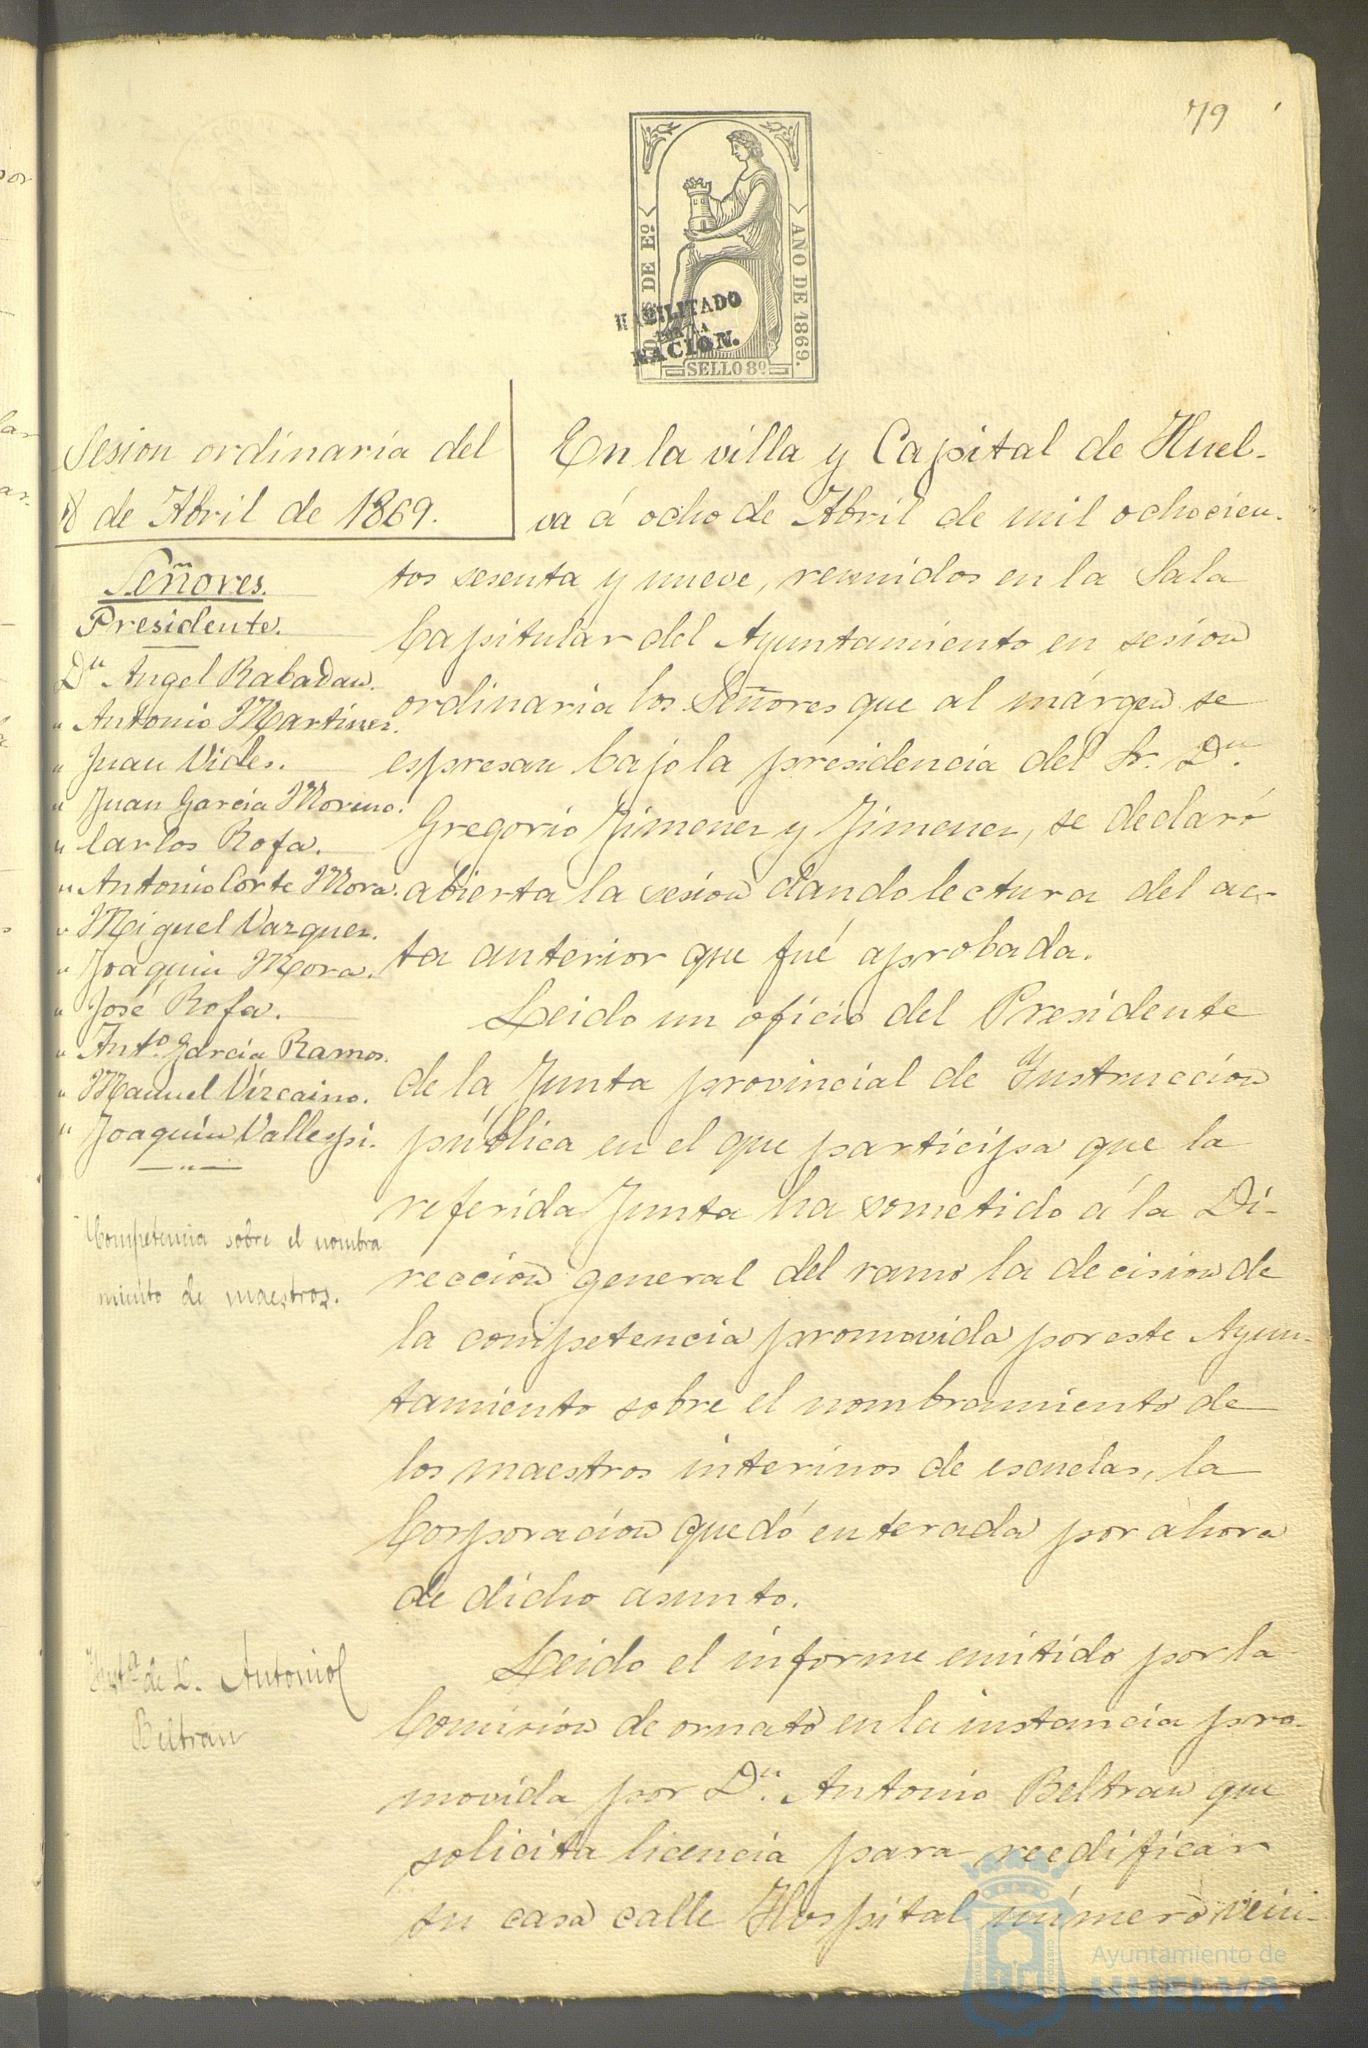 79
DOS DE Eº
AÑO DE 1869.
HABILITADO
POR LA
NACION.
SELLO 8º
Sesion ordinaria del
8 de Abril de 1869.
Señores.
Presidente.
Dn Angel Rabadan.
" Antonio Martinez.
" Juan Vides.
" Juan Garcia Moreno.
" Carlos Rofa.
" Antonio Corte Mora.
" Miguel Vazquez.
" Joaquin Mora.
" José Rofa.
" Antº Garcia Ramos.
" Manuel Vizcaino.
" Joaquin Vallespi.
Competencia sobre el nombra
miento de maestros.
Instª de D. Antonio
Beltran
En la villa y Capital de Huel-
va á ocho de Abril de mil ochocien-
tos sesenta y nueve, reunidos en la Sala
Capitular del Ayuntamiento en sesion
ordinaria los Señores que al márgen se
espresan bajo la presidencia del Sr. Dn.
Gregorio Jimenez y Jimenez, se declaró
abierta la sesion dando lectura del ac-
ta anterior que fué aprobada.
Leido un oficio del Presidente
de la Junta provincial de Instruccion
pública en el que participa que la
referida Junta ha sometido á la Di-
reccion general del ramo la decision de
la competencia promovida por este Ayun-
tamiento sobre el nombramiento de
los maestros interinos de escuelas, la
Corporacion quedó enterada por ahora
de dicho asunto.
Leido el informe emitido por la
Comision de ornato en la instancia pro-
movida por Dn. Antonio Beltran que
solicita licencia para reedificar
su casa calle Hospital número vein-
Ayuntamiento de
HUELVA